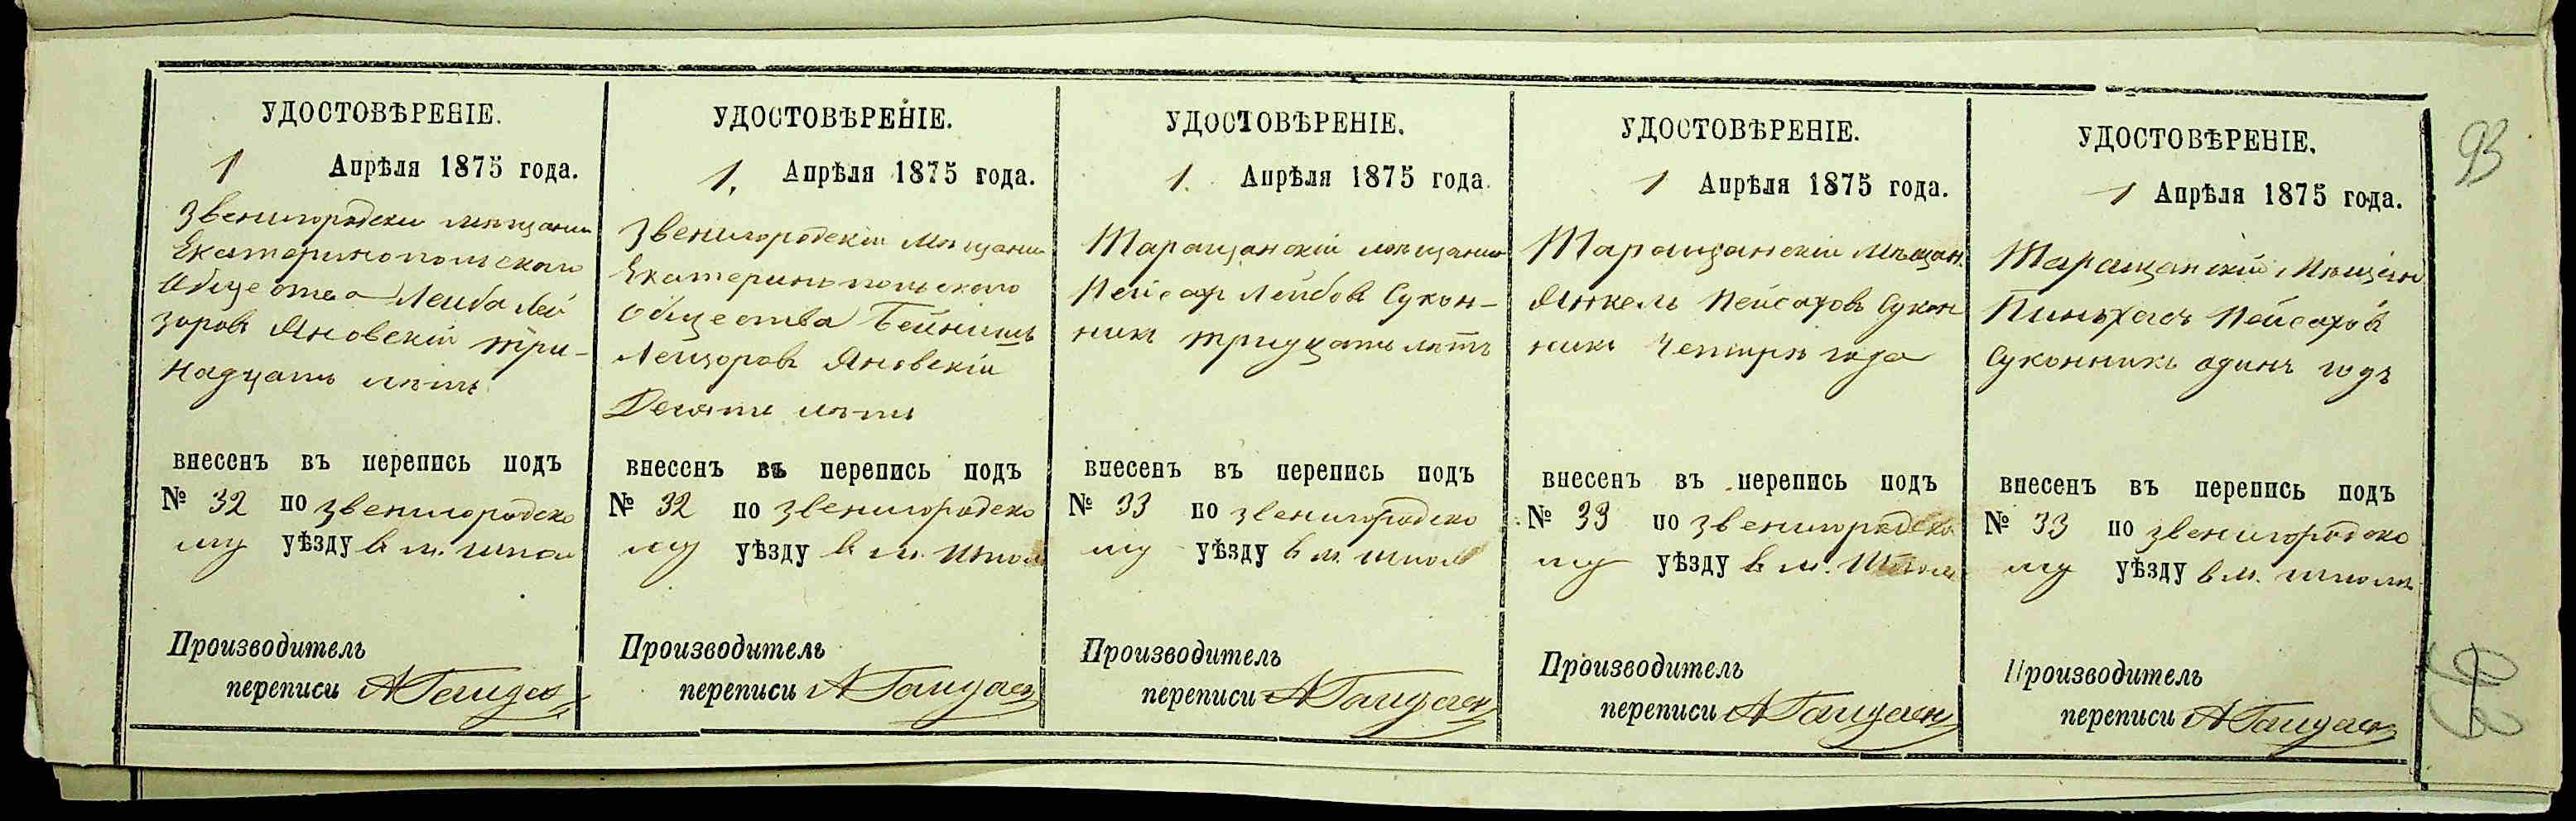 УДОСТОВѢРЕНІЕ.
1 Апрѣля 1875 года.
Звенигородски мѣщанин
Екатеринопольского
Общества Лейба Лей
зоровъ Яновскій три-
надцать лѣтъ
внесенъ въ перепись подъ
№ 32 по звенигородско
му уѣзду в м. Шпол
Производитель
переписи
УДОСТОВѢРЕНІЕ.
1. Апрѣля 1875 года.
Звенигородскій Мѣщанин
Екатеринопольского
Общества Бейнишъ
Лейзоровъ Яновскій
Десять лѣтъ
внесенъ въ перепись подъ
№ 32 по звенигородско
му уѣзду в м. Шпол
Производитель
переписи
УДОСТОВѢРЕНІЕ.
1. Апрѣля 1875 года.
Таращанскій мѣщанин
Пейсах Лейбовъ Сукон-
никъ тридцать лѣтъ
внесенъ въ перепись подъ
№ 33 по звенигородско
му уѣзду в м. Шпол
Производитель
переписи
УДОСТОВѢРЕНІЕ.
1 Апрѣля 1875 года.
Таращанскій Мѣщан.
Янкель Пейсаховъ Сукон
никъ Четыре года
внесенъ въ перепись подъ
№ 33 по звенигородско
му уѣзду в м. Шполѣ
Производитель
переписи
УДОСТОВѢРЕНІЕ.
1 Апрѣля 1875 года.
Таращанскій Мѣщан
Пинькасъ Пейсаховъ
Суконникъ одинъ годъ
внесенъ въ перепись подъ
№ 33 по звенигородско
му уѣзду в м. Шполѣ
Производитель
переписи
93